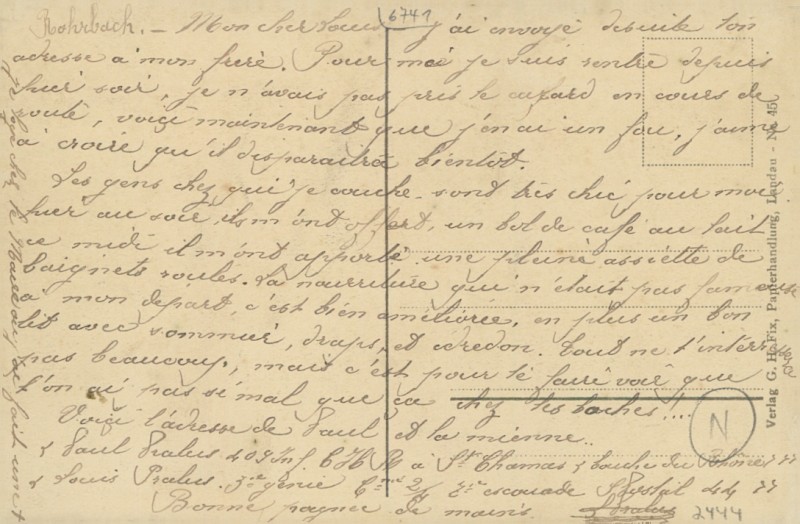 6741
Rohrbach. – Mon cher Louis j'ai envoyé desuite ton
adresse a' mon frère. Pour moi je suis rentré depuis
hier soir, je n'avais pas pris le cafard en cours de
route, voiçi maintenant que j'en ai un fou, j'aime
a' croire qu'il disparaitra bientot.
Les gens chez qui je couche sont très chic pour moi
hier au soir, ils m'ont offert, un bol de café au lait
ce midi il m'ont apporté une pleine assiette de
baignets roulés. La nourriture qui n'était pas fameuse
a' mon départ, c'est bien améliorée, en plus un bon
lit avec sommier, draps, et edredon. Tout ne t'intéresse
pas beaucoup, mais c'est pour te faire voir que
l'on ai pas si mal que ça chez les boches!...
Voiçi l'adresse de Paul et la mienne..
Paul Pralus 40 Inf. C H R a St Chamas bouche du Rhône
Louis Pralus. génie 2/ escouade
Bonne pognée de mains. Pralus
chez le
fait
Verlag G. H. Fix, Papierhandlung, Landau - Nr. 45
N
2444